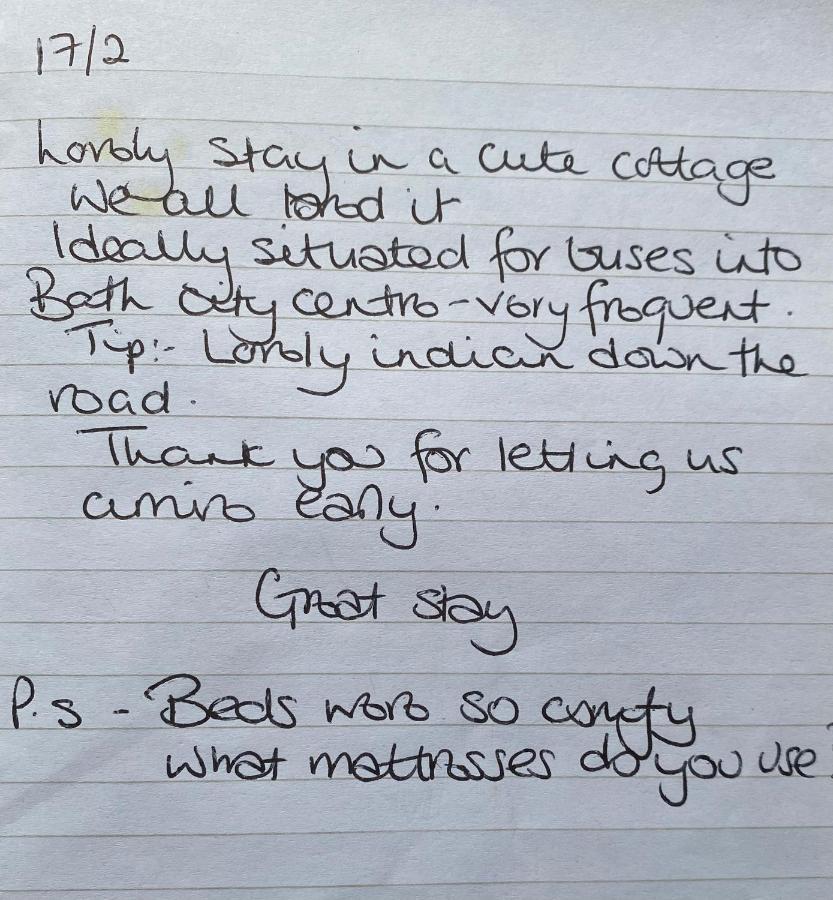 17/2
Lovely stay in a cute cottage
We all loved it
Ideally situated for buses into
Bath city centre - very frequent.
Tip:- Lovely indian down the
road.
Thank you for letting us
arrive early.
Great stay
P.s - Beds were so comfy
what mattresses do you use?